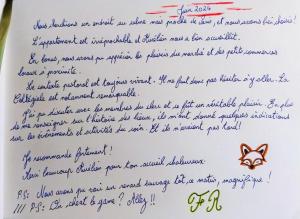 Juin 2024
Nous cherchions un endroit au calme mais proche de Lens, et nous avons été servis !
L'appartement est irréprochable et Aurélien nous a bien accueilli.
En bonus, nous avons pu apprécier les plaisirs du marché et des petits commerces
locaux à proximité.
Le contexte pastoral est toujours vivant. Il ne faut donc pas hésiter à y aller. La
Collégiale est notamment remarquable.
J'ai pu discuter avec les membres du clergé et ce fut un véritable plaisir. En plus
de me renseigner sur l'histoire des lieux, ils m'ont donné quelques indications
sur les événements et activités du coin. Et ils n'avaient pas tord !
Je recommande fortement !
Merci beaucoup Aurélien pour ton accueil chaleureux.
P.S: Nous avons pu voir un renard sauvage tôt, ce matin, magnifique !
/!\ P.S: On était le game ? Allez !!
F R